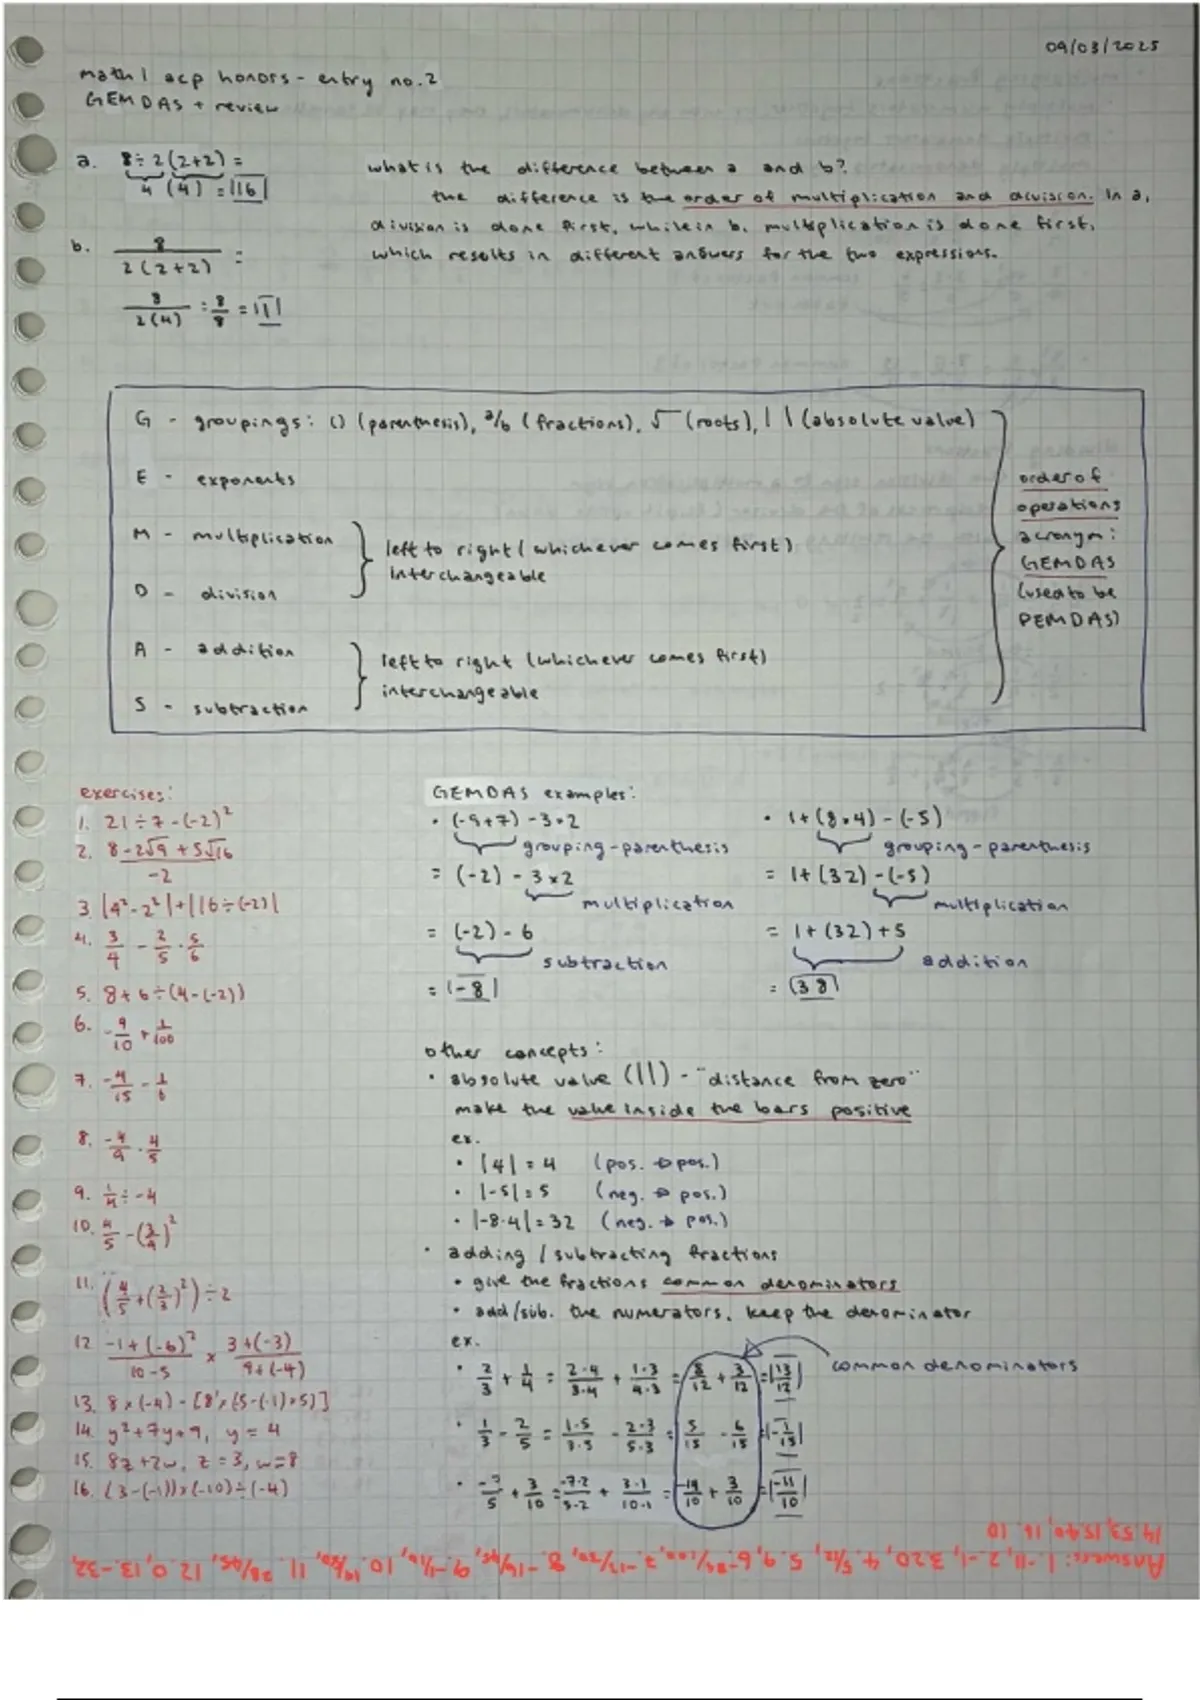 09/03/2025
math 1 acp honors - entry no. 2
GEMDAS + review
a. 8÷2(2+2) =
4 (4) = |16|
b. 8/2(2+2) =
8/2(4) = 8/8 = |1|
what is the difference between a and b?
the difference is the order of multiplication and division. In a,
division is done first, while in b, multiplication is done first,
which results in different answers for the two expressions.
G - groupings: () (parenthesis), a/b (fractions), √ (roots), | | (absolute value)
E - exponents
M - multiplication
D - division
left to right (whichever comes first)
interchangeable
A - addition
S - subtraction
left to right (whichever comes first)
interchangeable
order of
operations
acronym:
GEMDAS
(used to be
PEMDAS)
exercises:
1. 21÷7-(-2)²
2. 8-2√9+5√16/-2
3. |4²-2²|+|16÷(-2)|
4. 3/4 - 2/5 · 5/6
5. 8+6÷(4-(-2))
6. -9/10 + 1/100
7. -4/15 - 1/6
8. -4/9 · 4/5
9. 1/4 ÷ -4
10. 4/5 - (3/4)²
11. (4/5+(2/3)²) ÷ 2
12. -1+(-6)²/10-5 × 3+(-3)/9+(-4)
13. 8×(-4) - [8¹×(5-(-1)×5)]
14. y²+7y+9, y=4
15. 8z+2w, z=3, w=8
16. (3-(-1))×(-10)÷(-4)
GEMDAS examples:
• (-9+7) - 3×2
grouping - parenthesis
= (-2) - 3×2
multiplication
= (-2) - 6
subtraction
= |-8|
• 1+(8×4)-(-5)
grouping - parenthesis
= 1+(32)-(-5)
multiplication
= 1+(32)+5
addition
= |38|
other concepts:
• absolute value (||) - "distance from zero"
make the value inside the bars positive
ex.
• |4| = 4 (pos. → pos.)
• |-5| = 5 (neg. → pos.)
• |-8·4| = 32 (neg. → pos.)
• adding / subtracting fractions
• give the fractions common denominators
• add/sub. the numerators, keep the denominator
ex.
• 2/3 + 1/4 = 2·4/3·4 + 1·3/4·3 = 8/12 + 3/12 = |13/12|
common denominators
• 1/3 - 2/5 = 1·5/3·5 - 2·3/5·3 = 5/15 - 6/15 = |-1/15|
• -7/5 + 3/10 = -7·2/5·2 + 3·1/10·1 = -14/10 + 3/10 = |-11/10|
Answers: 1. -11, 2. -11, 3. 20, 4. 5/12, 5. 9, 6. -89/100, 7. -13/30, 8. -16/45, 9. -1/16, 10. 19/80, 11. 28/45, 12. 0, 13. -32,
14. 53, 15. 40, 16. 10